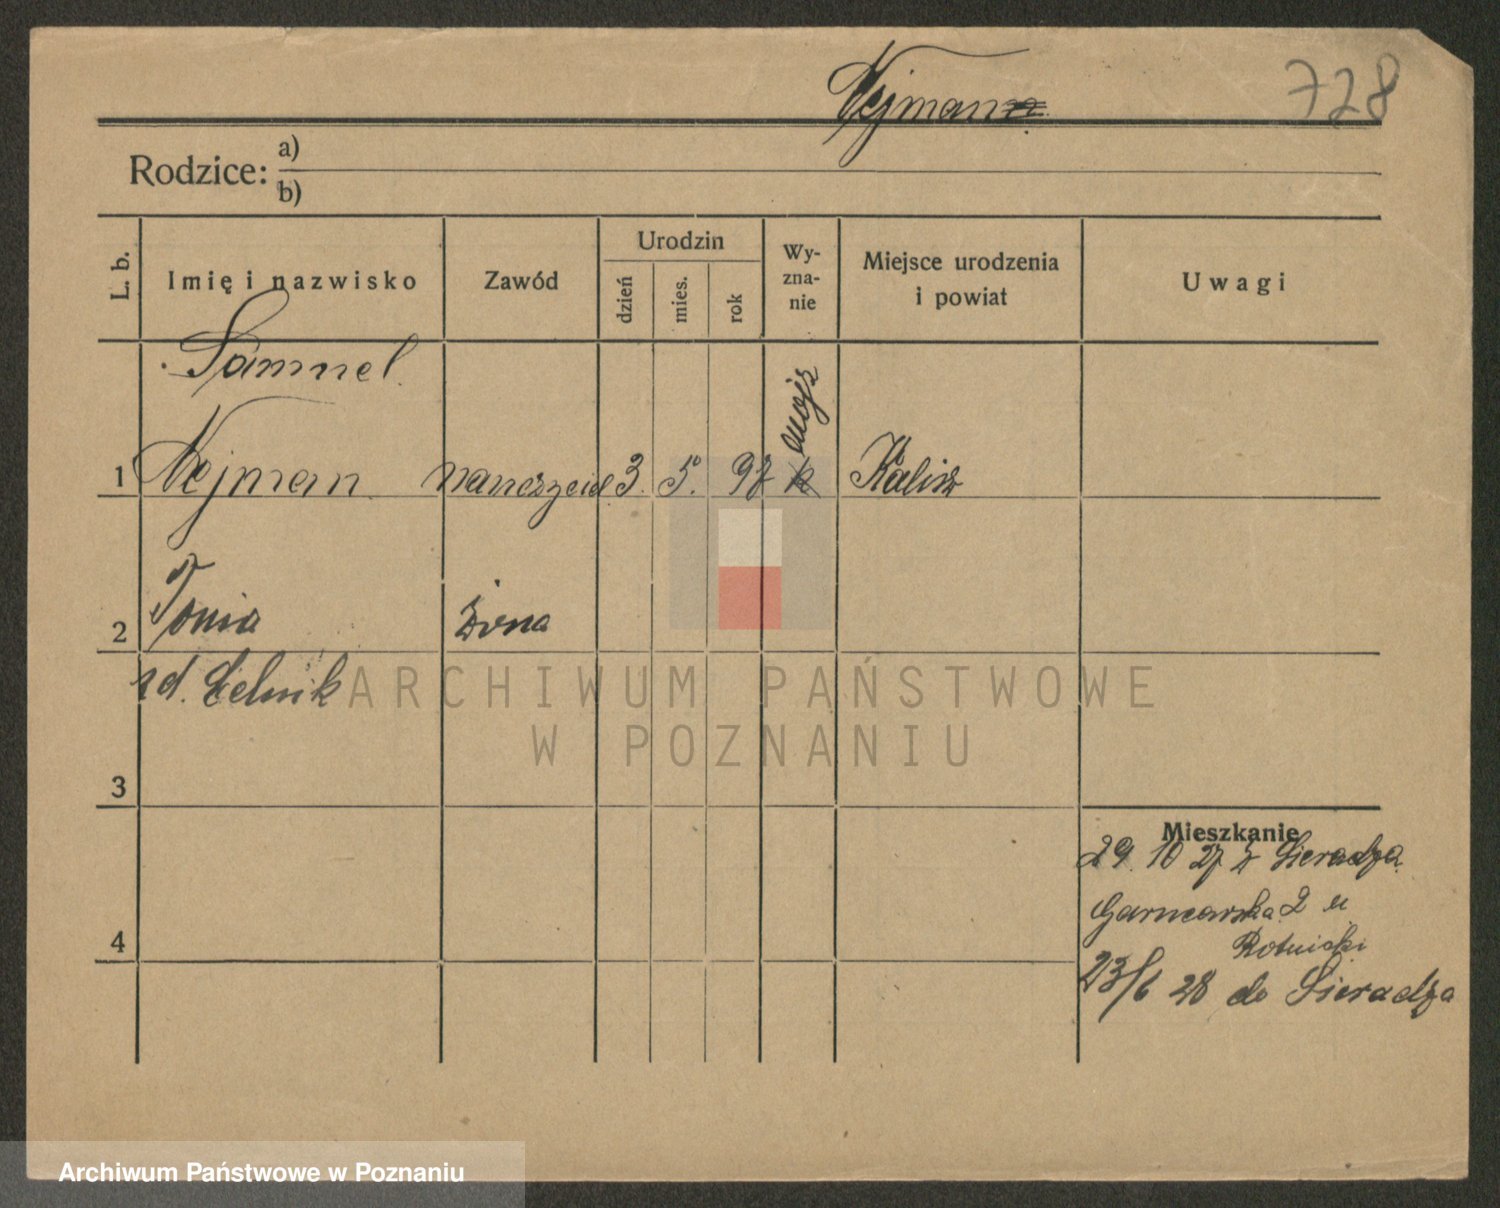 Nejman
728
Rodzice: a)
b)
L. b.
Imię i nazwisko
Zawód
Urodzin
dzień
mies.
rok
Wy-
zna-
nie
Miejsce urodzenia
i powiat
Uwagi
Samuel
mojż
1 Nejman nauczyciel 3. 5. 97 k Kalisz
2 Tonia żona
zd. Celnik
3
Mieszkanie
29. 10 27 z Sieradza
Garncarska 2 u
4
23/6 28 do Sieradza
ARCHIWUM PAŃSTWOWE
W POZNANIU
Archiwum Państwowe w Poznaniu